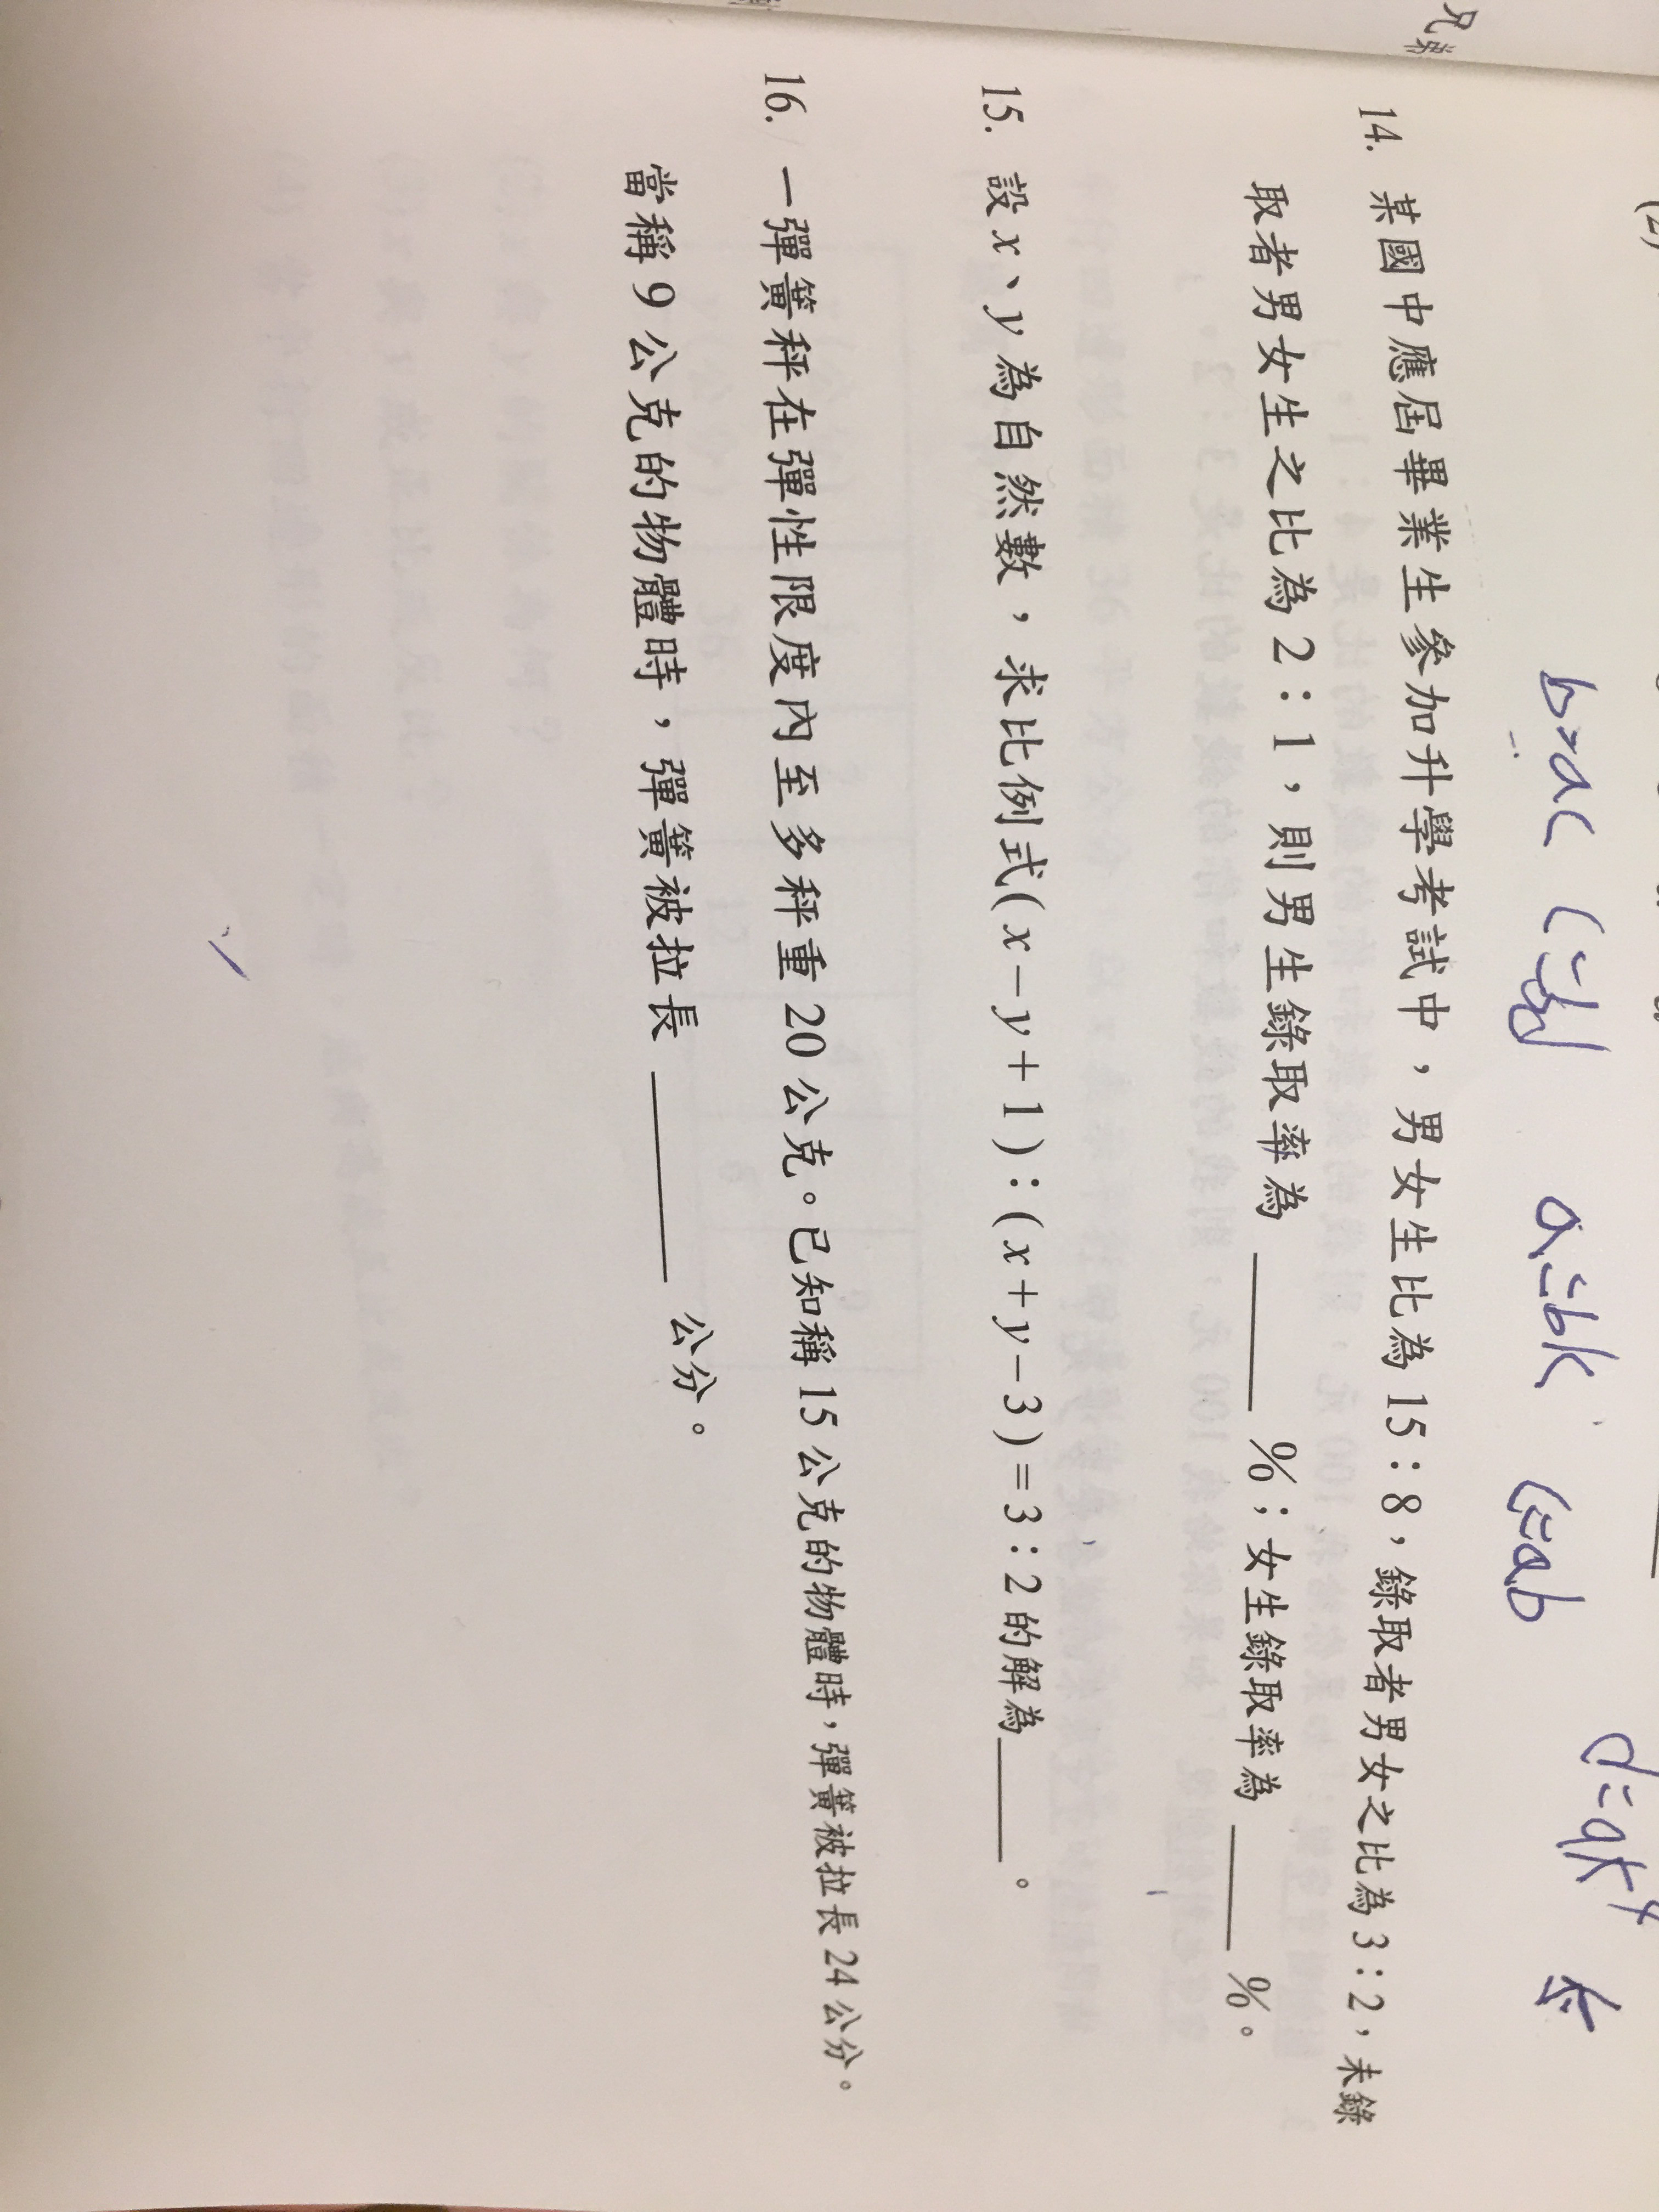 兄弟
(2)
b=ac
a=bk
c=ab
d=qk⁴
14. 某國中應屆畢業生參加升學考試中，男女生比為 15：8，錄取者男女之比為 3：2，未錄
取者男女生之比為 2：1，則男生錄取率為 ______ %；女生錄取率為 ______ %。
15. 設 x、y 為自然數，求比例式(x－y＋1)：(x＋y－3)＝3：2 的解為______。
16. 一彈簧秤在彈性限度內至多秤重 20 公克。已知稱 15 公克的物體時，彈簧被拉長 24 公分。
當稱 9 公克的物體時，彈簧被拉長 ______ 公分。